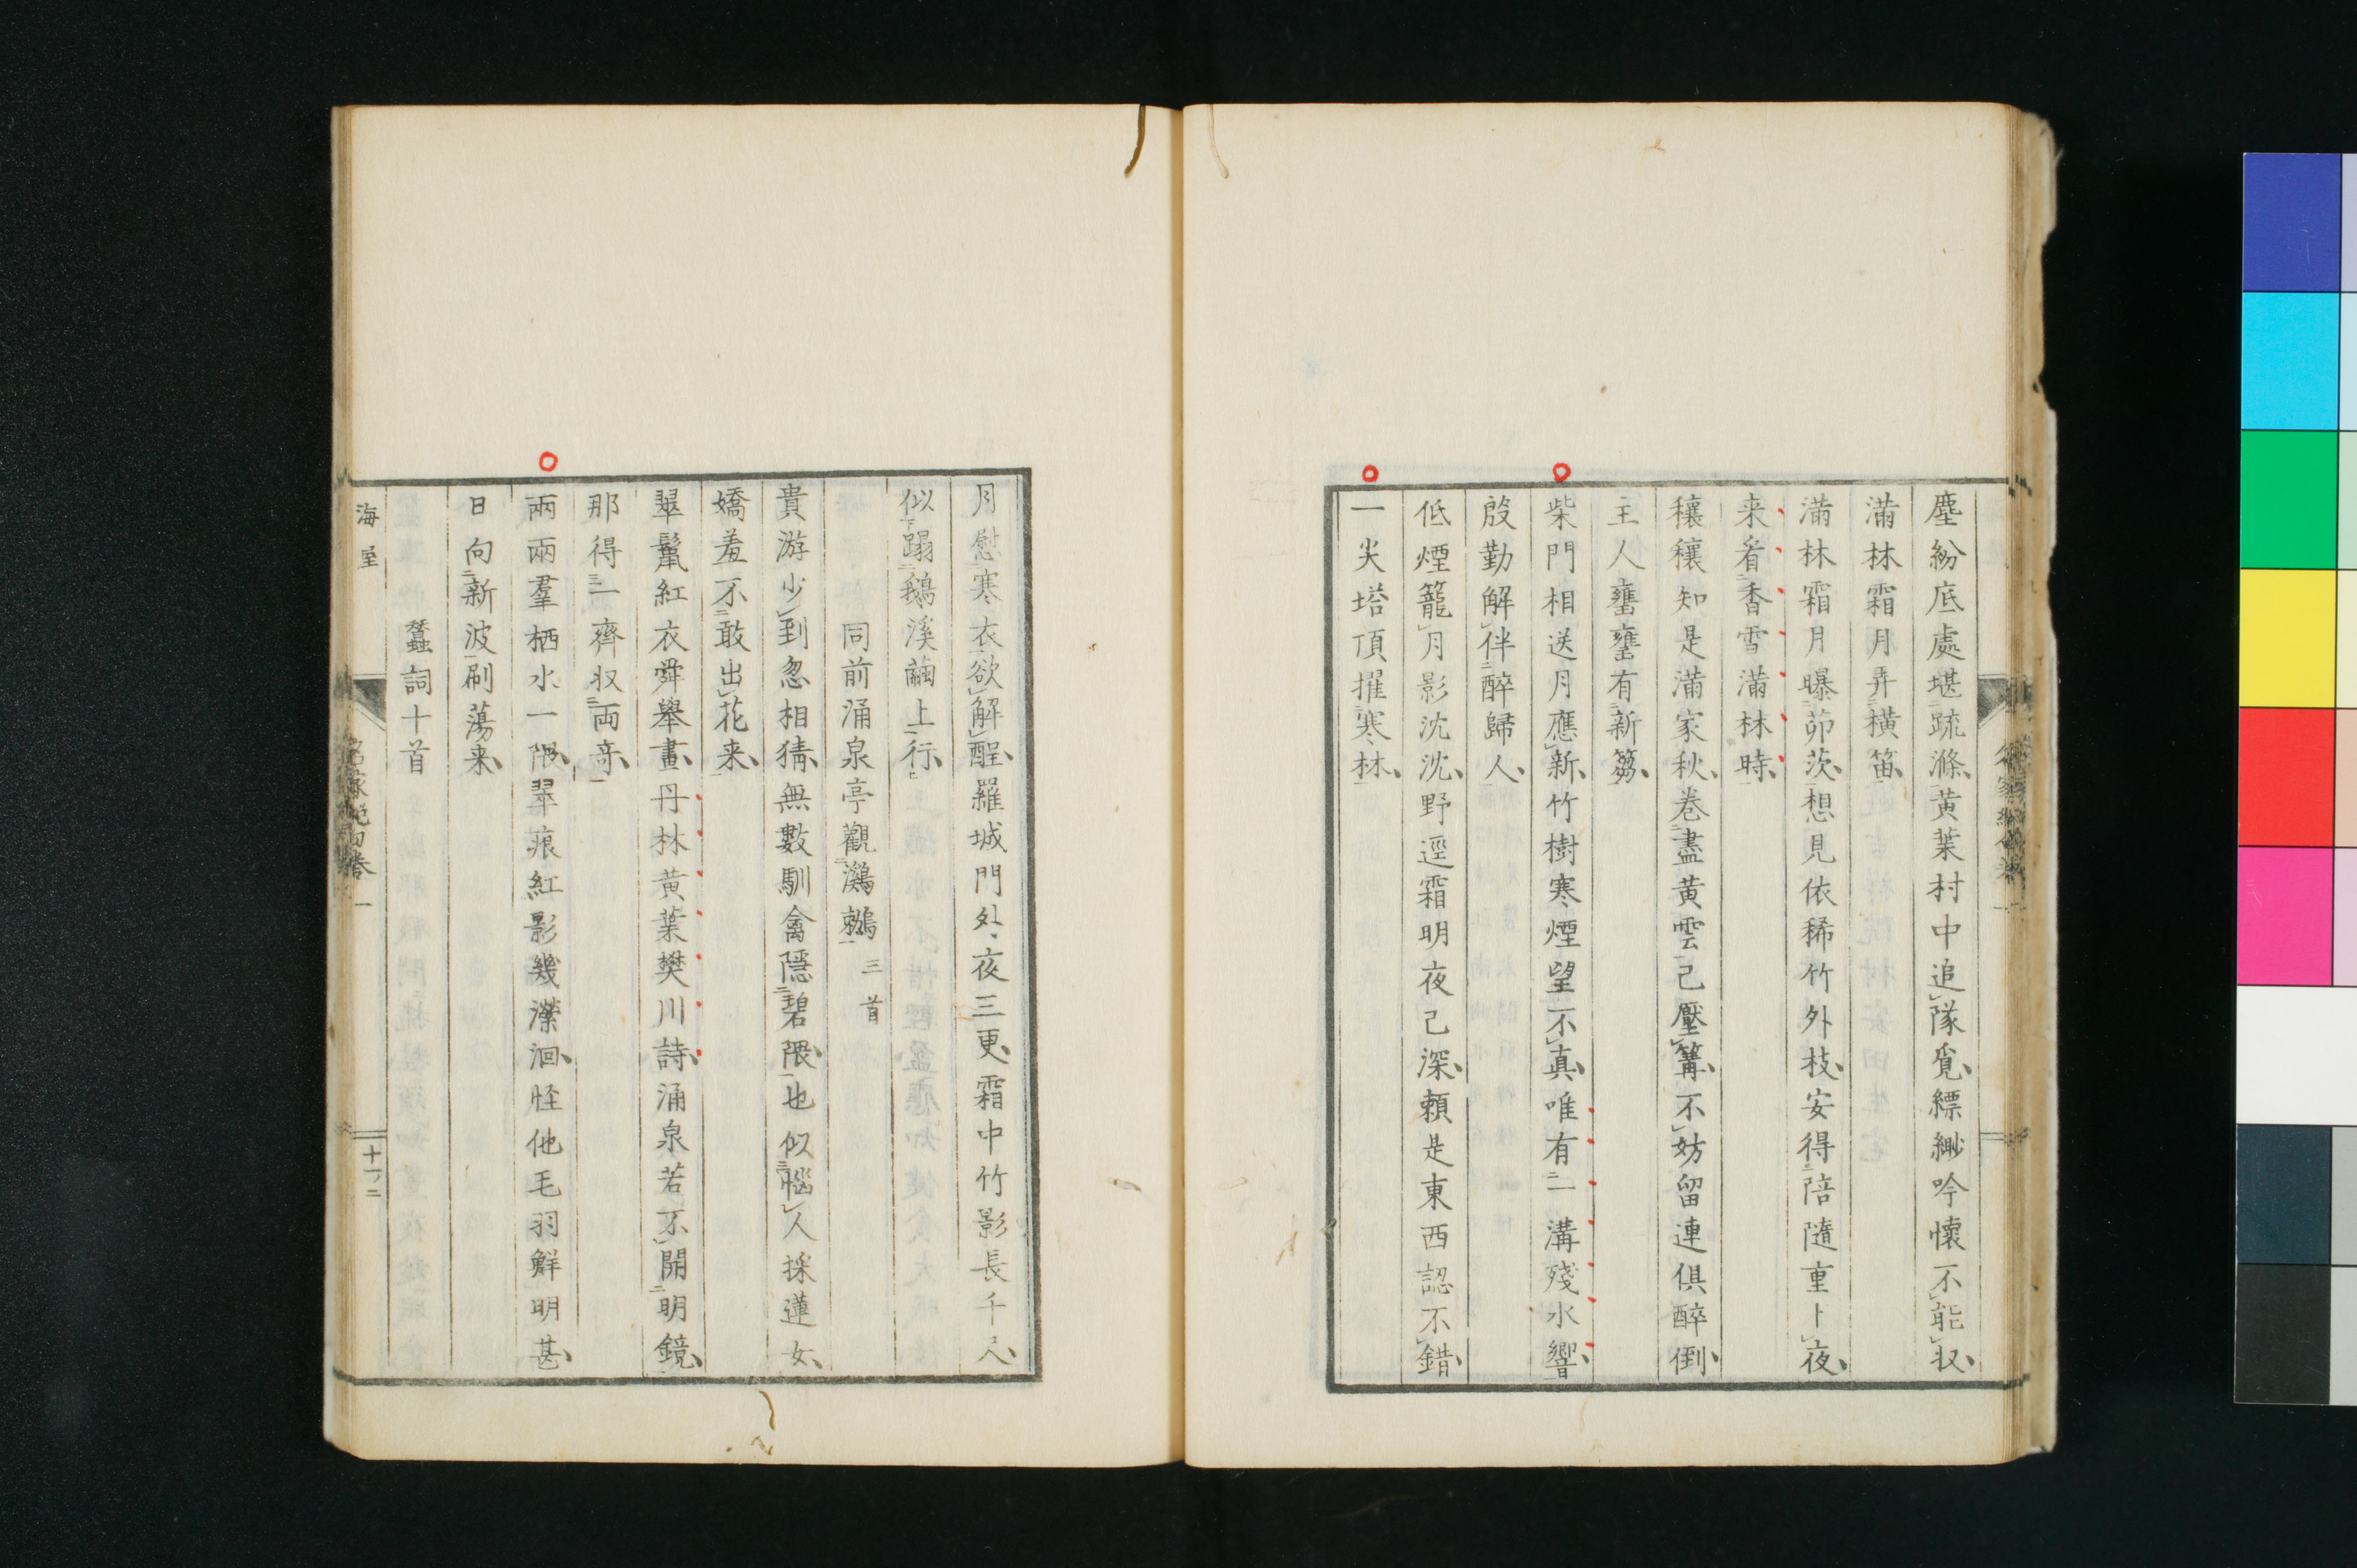 塵紛底處堪疏滌黃葉村中追隊覓縹緲吟懷不能収
滿林霜月弄横笛
滿林霜月曝茆茨想見依稀竹外枝安得陪隨重卜夜
来看香雪滿林時
穰穰知是滿家秋卷盡黃雲已壓篝不妨留連俱醉倒
主人甕甕有新篘
柴門相送月應新竹樹寒煙望不真唯有一溝殘水響
殷勤解伴醉歸人
低煙籠月影沈沈野逕霜明夜已深頼是東西認不錯
一尖塔頂擢寒林
月慰寒衣欲解酲羅城門外夜三更霜中竹影長千尺
似蹋鵝溪繭上行
同前涌泉亭觀鸂鶒 三首
貴游少到忽相猜無數馴禽隱碧隈也似惱人採蓮女
嬌羞不敢出花来
翠鬣紅衣舜舉畫丹林黃葉樊川詩涌泉若不開明鏡
那得一齊収両奇
兩兩羣栖水一隈翠痕紅影幾瀠洄怪他毛羽鮮明甚
日向新波刷蕩来
蠶詞十首
海屋
名家絶句卷一
十二